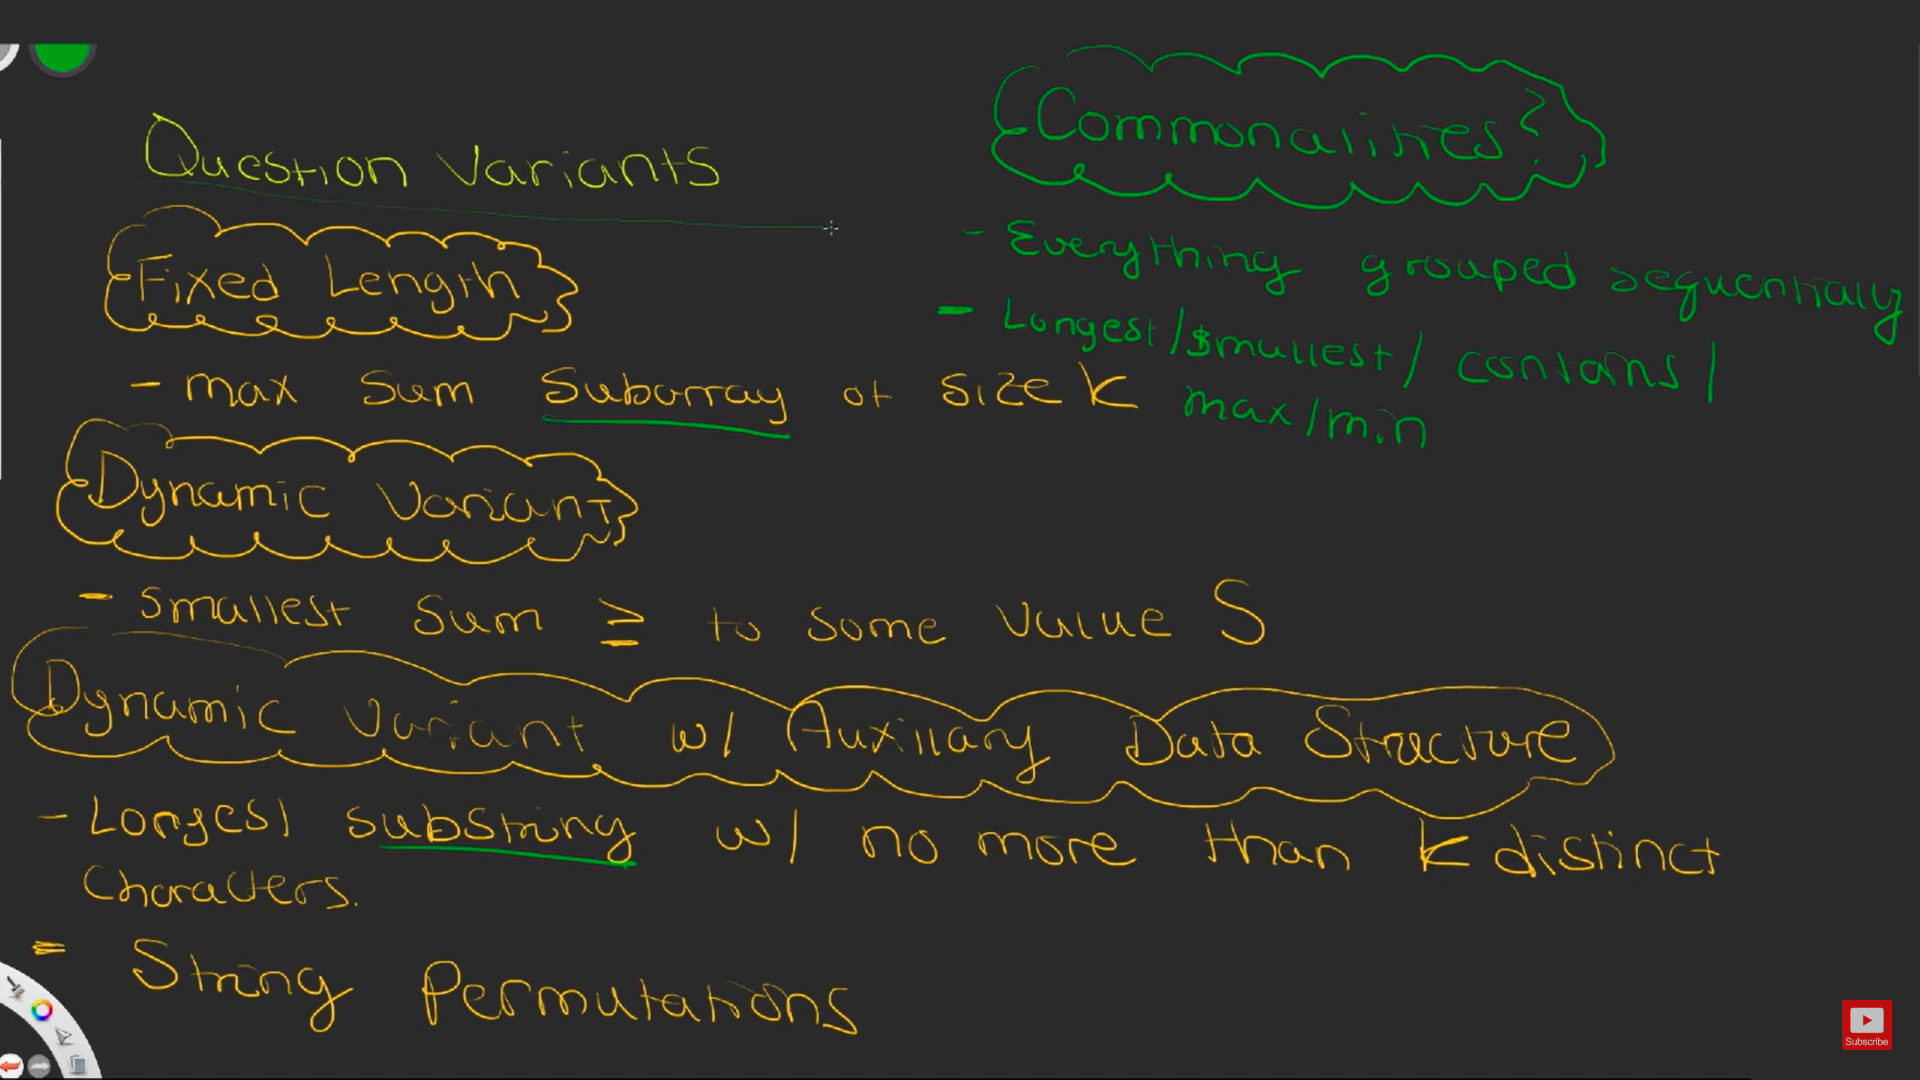 Question Variants
Fixed Length
- max sum subarray of size K
Dynamic Variant
- Smallest Sum ≥ to some value S
Dynamic Variant w/ Auxillary Data Structure
- Longest substring w/ no more than k distinct
Characters.
= String Permutations
Commonalities?
- Everything grouped sequentially
- Longest/Smallest/ contains/
max/min
Subscribe